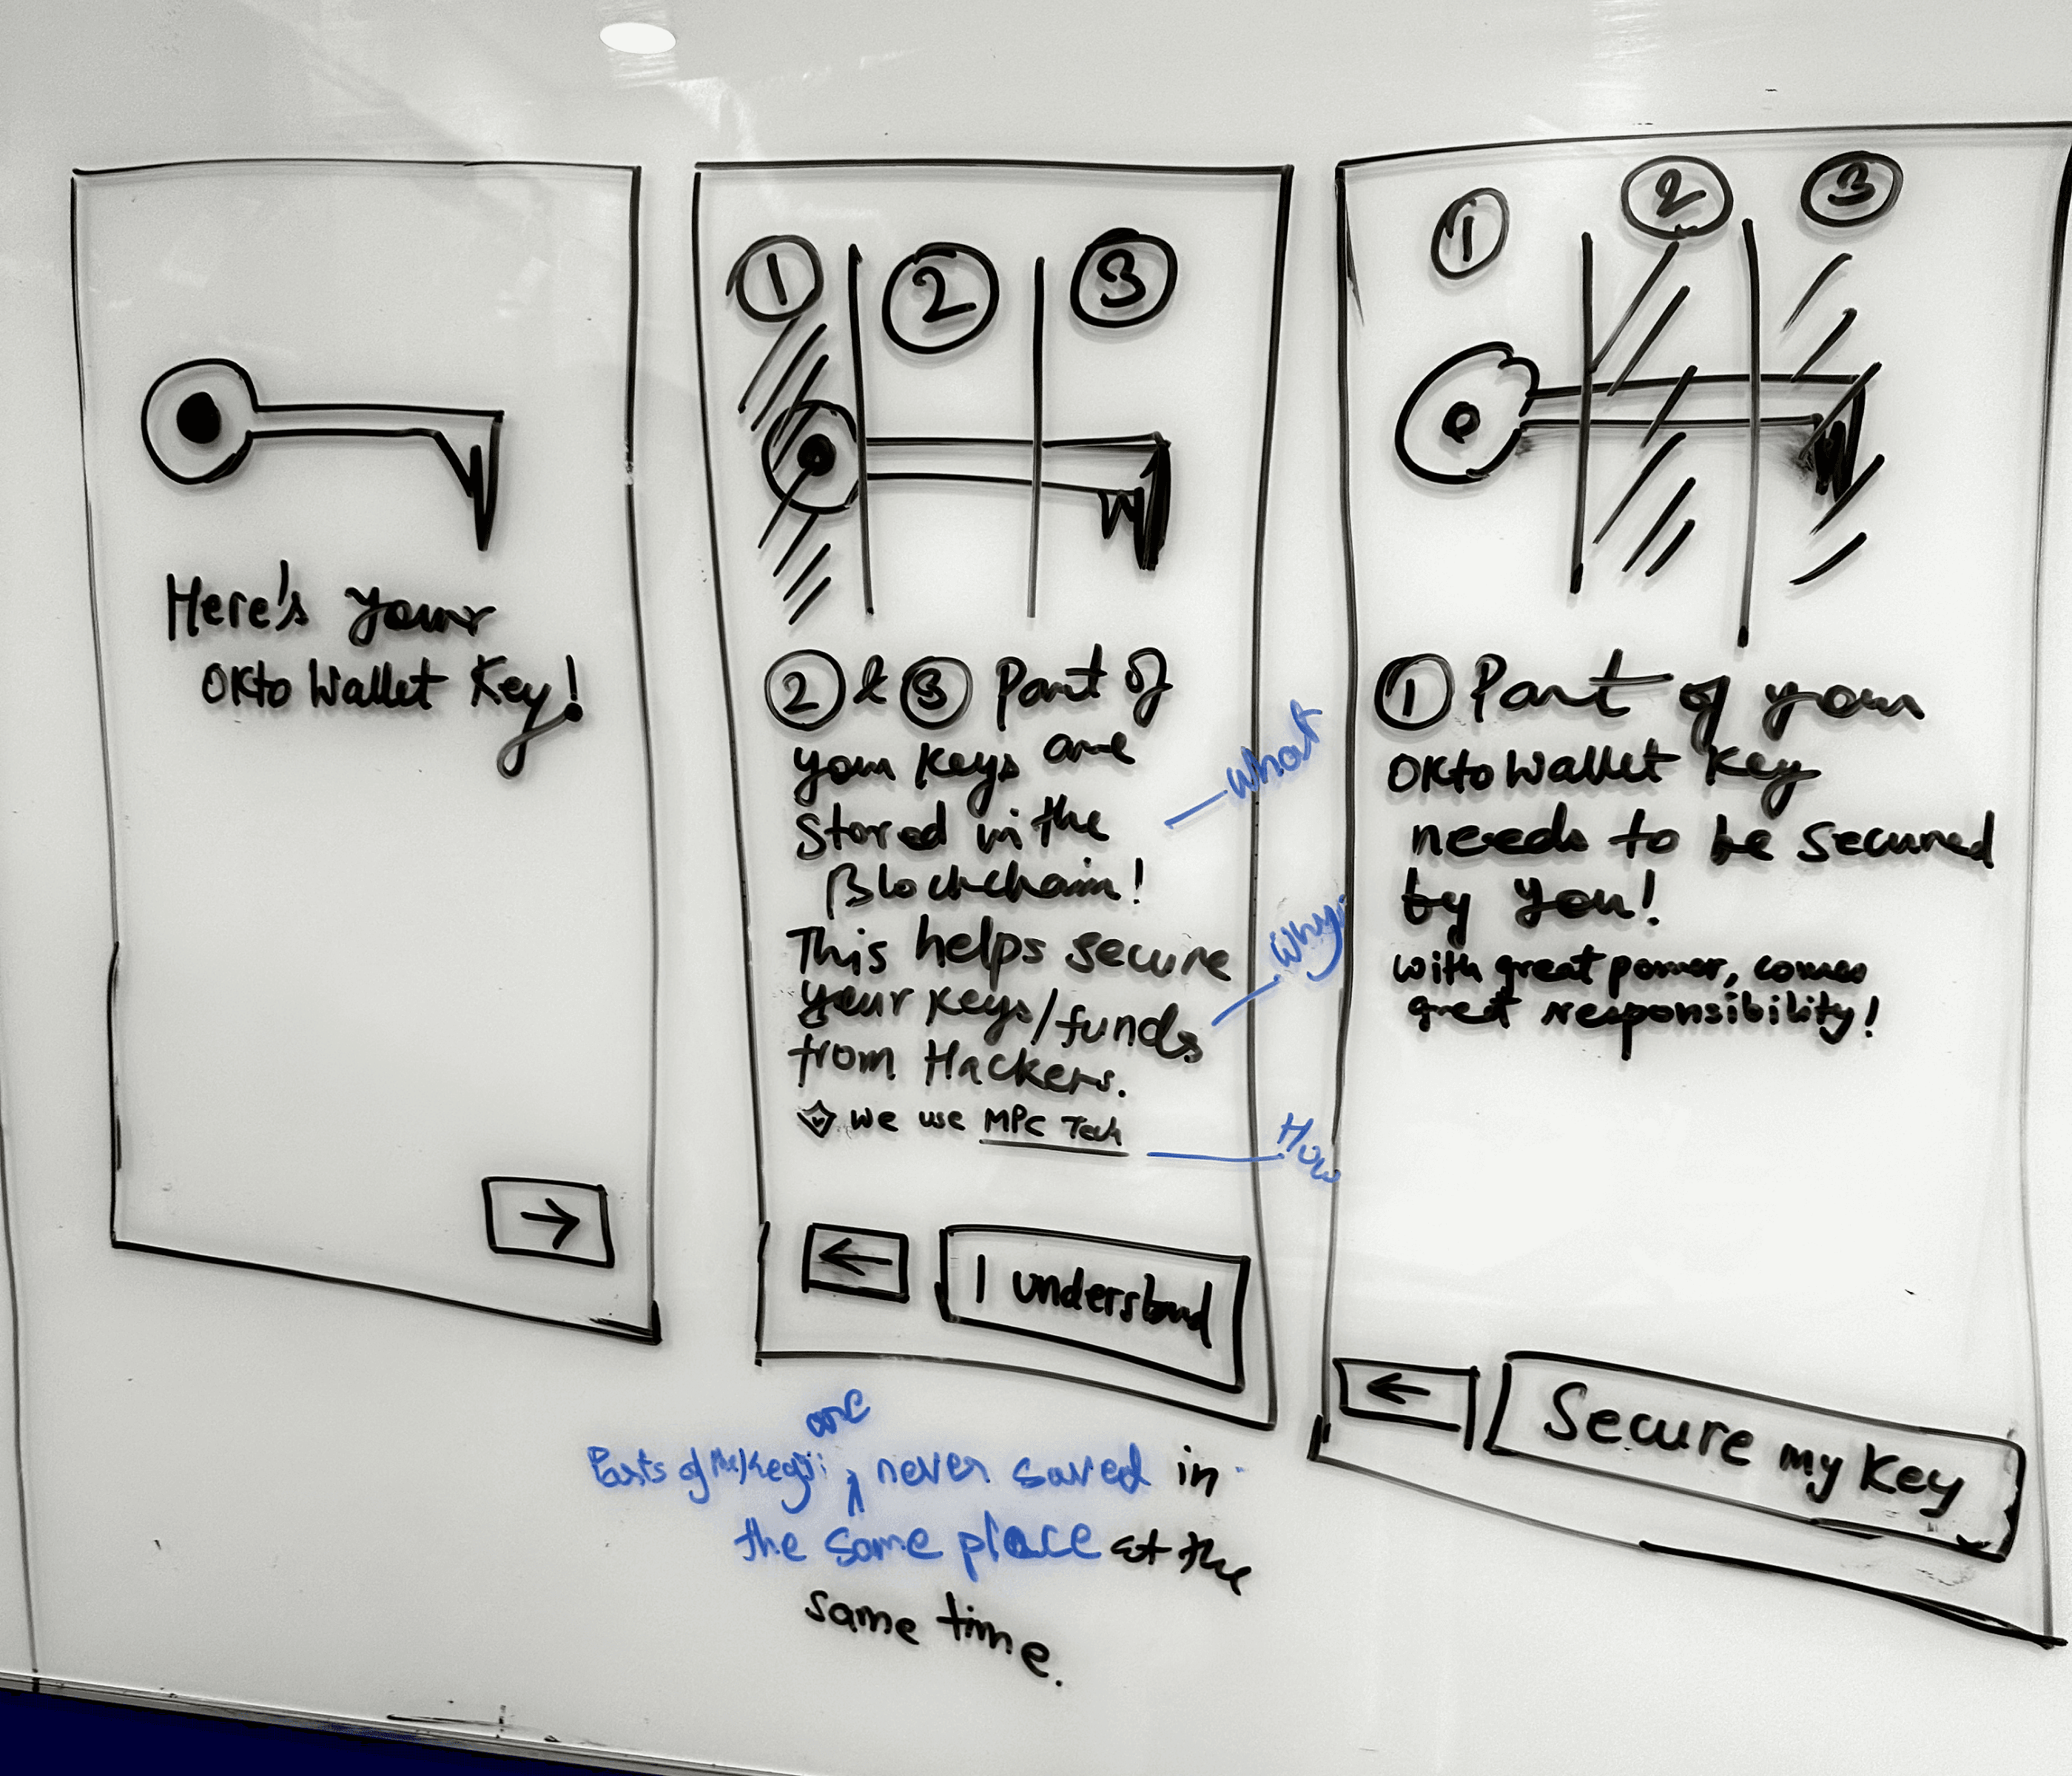 Here's your
Okto Wallet Key!
→
1 2 3
2 & 3 Part of
your keys are
stored in the
Blockchain!
This helps secure
your keys/funds
from Hackers.
We use MPC Tech
What
Why
How
←
I understand
are
Parts of the keys never saved in
the same place at the
same time.
1 2 3
1 Part of your
Okto Wallet Key
needs to be secured
by you!
with great power, comes
great responsibility!
←
Secure my Key